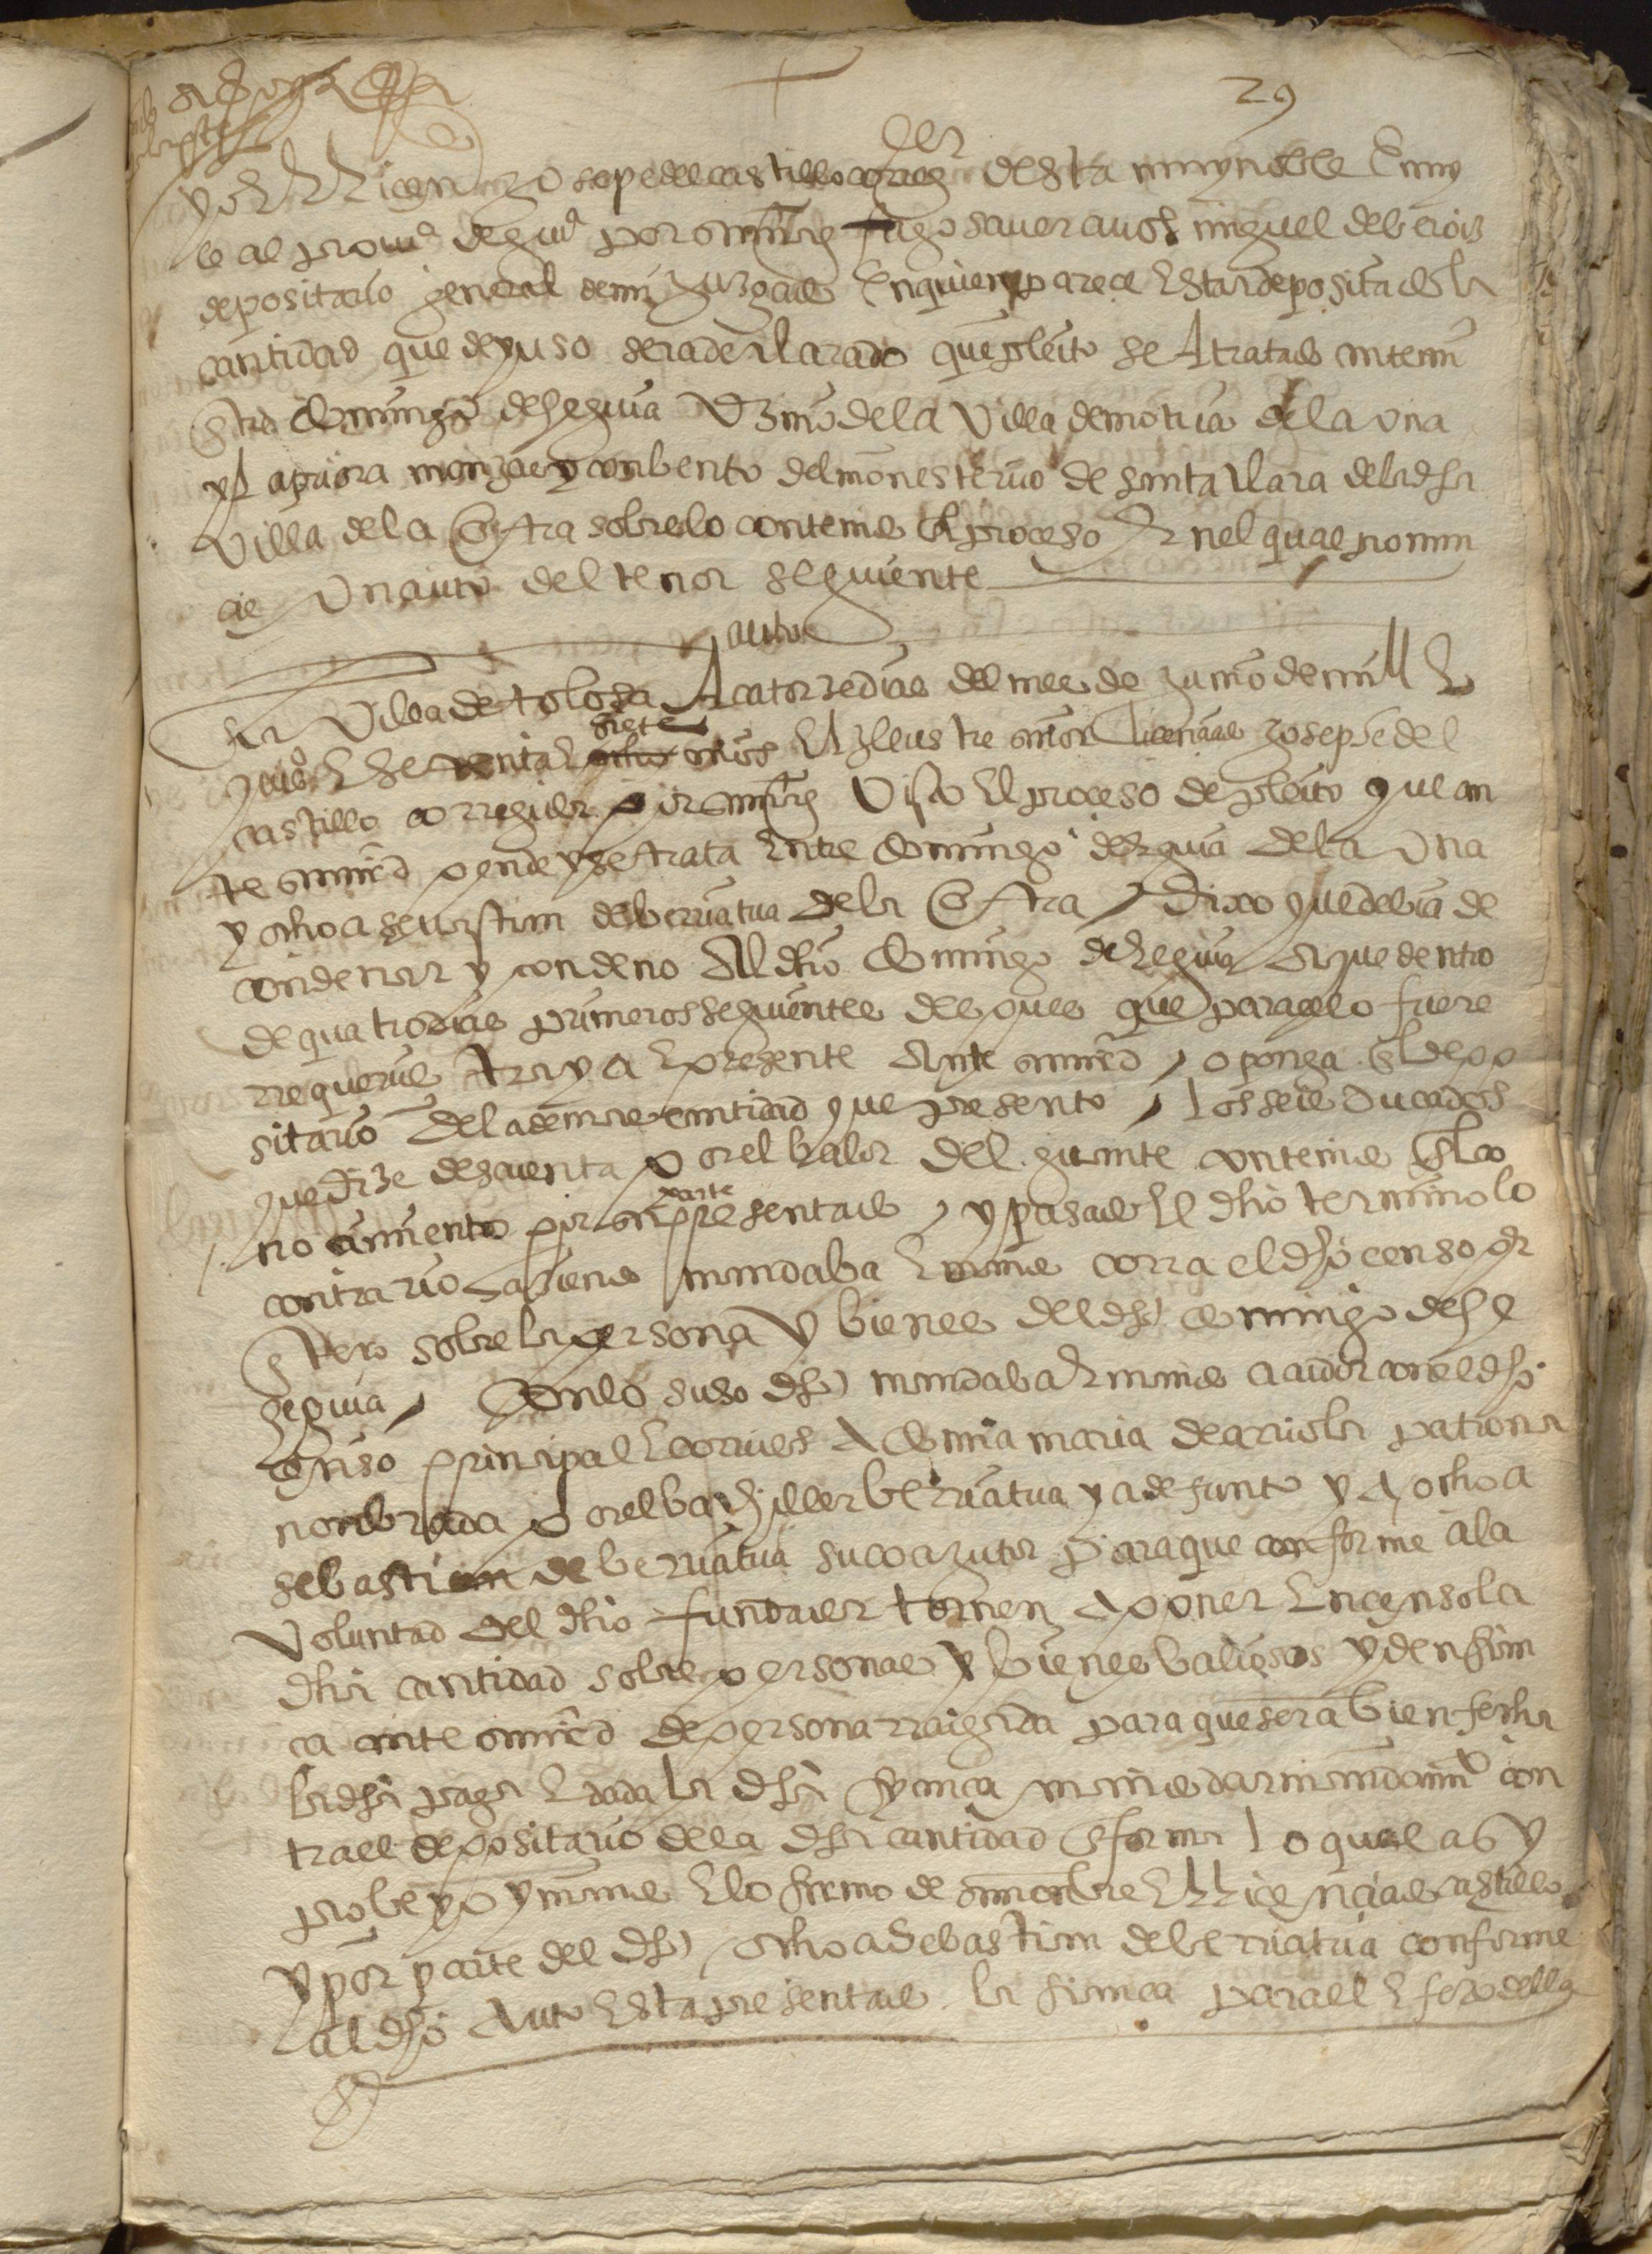 29
yo el licenciado Josepe del castillo corregidor desta muy noble e muy
le al provinª de guipª por su magd hago saver a vos miguel de
depositario general de mi juzgado en quien parece estar depositado la
cantidad que de yuso sera declarado que pleito se a tratado ante mi
entre domingo de segura vezino de la villa de motrico de la una
y la priora monjas y conbento del monesterio de santa clara de la dha
villa de la otra sobre lo contenido en el proceso en el qual pronun
cie un auto del tenor seguiente
auto
en la villa de tolosa a catorze dias del mes de junio de mill e
quiºs e setenta e siete años el yllustre señor licenciado Josepe del
castillo corregidor por su magd visto el proceso de pleito que an
te su mrd pende y se trata entre domingo de segura de la una
y ochoa sevastian de berriatua de la otra / dixo que debia de
condenar y condeno al dho domingo de segura a que dentro
de quatro dias primeros seguientes despues que para ello fuere
rrequerido traya e presente ante su mrd / o ponga en el depo
sitario de la demas cantidad que presento / los seis ducados
que dize descuenta por el valor del guante contenido en el co
nocimiento por su parte presentado / y pasado el dho termino lo
contrario haziendo mandaba e mando corra el dho censo en
tero sobre la persona y bienes del dho domingo de se
segura / con lo suso dho mandaba e mando acudir con el dho
censo principal e corridos a domia maria de arriola patrona
nonbrada por el bachiller berriatua ya defunto y a ochoa
sebastian de berriatua su coajutor para que conforme a la
voluntad del dho fundador tornen a poner en censo la
dha cantidad sobre personas y bienes valiosos y den fian
ca ante su mrd de persona rraigada para que sera bien fecha
la dha paga e dada la dha fianca mando dar mandamiº con
tra el depositario de la dha cantidad en forma lo qual asi
probeyo y mando e lo firmo de su nonbre el licenciado castillo
y por parte del dho ochoa sebastian de berriatua conforme
al dho auto esta presentado la fianca para el efeto della